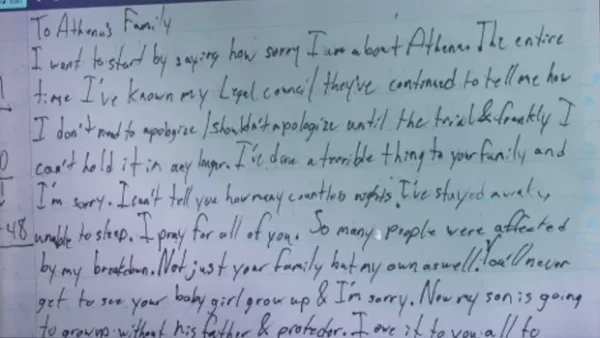 To Athena's Family
I want to start by saying how sorry I am about Athena. The entire
time I've known my Legal council they've continued to tell me how
I don't need to apologize / shouldn't apologize until the trial & frankly I
can't hold it in any longer. I've done a terrible thing to your family and
I'm sorry. I can't tell you how many countless nights I've stayed awake,
unable to sleep. I pray for all of you. So many people were affected
by my breakdown. Not just your family but my own aswell. You'll never
get to see your baby girl grow up & I'm sorry. Now my son is going
to grow up without his father & protector. I owe it to you all to
48